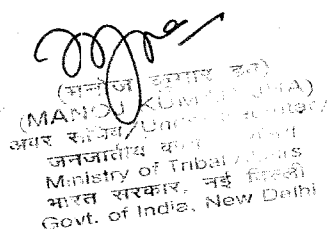 (मनोज कुमार झा)
(MANOJ KUMAR JHA)
अवर सचिव/Under Secretary
जनजातीय कार्य
Ministry of Tribal Affairs
भारत सरकार, नई दिल्ली
Govt. of India, New Delhi